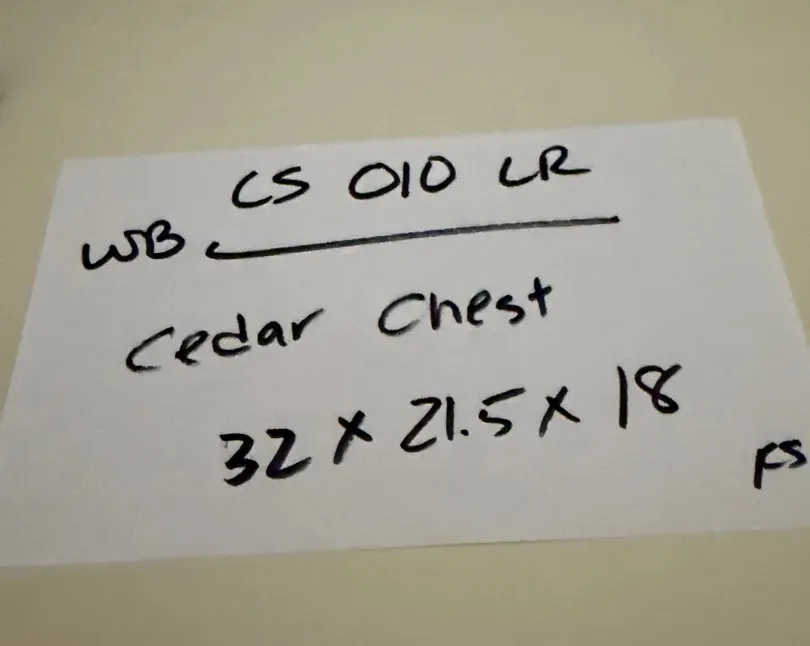 CS 010 LR
WB
Cedar Chest
32 x 21.5 x 18
FS